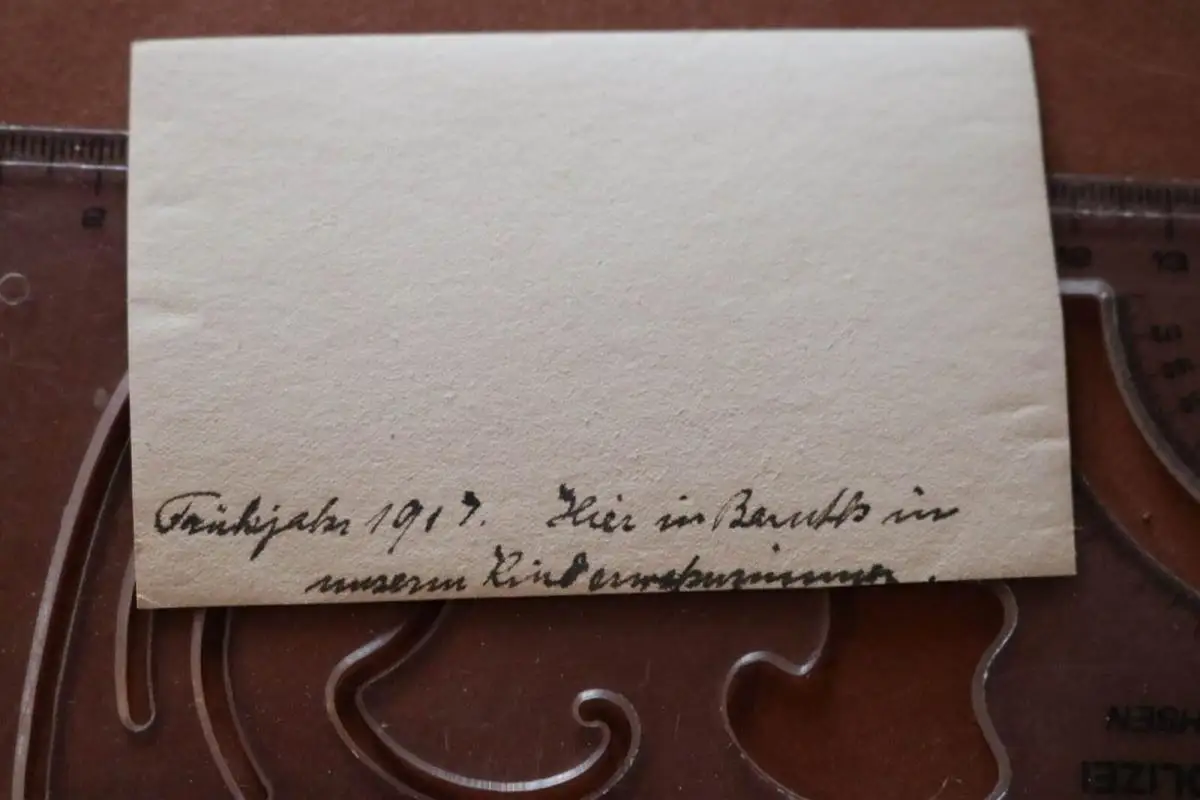 Frühjahr 1917. Hier in Baruth in
unserm Kinderwohnzimmer.
HSEN
OLIZEI